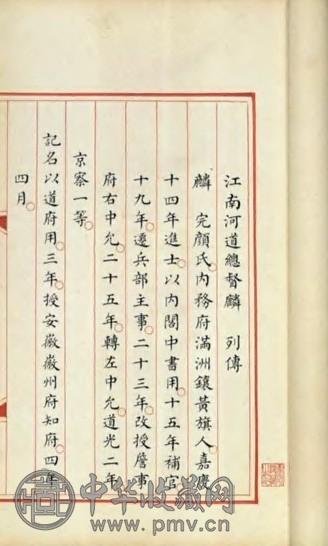 江南河道總督麟　列傳
麟　完顏氏內務府滿洲鑲黃旗人嘉慶
十四年進士以內閣中書用十五年補官
十九年遷兵部主事二十三年改授詹事
府右中允二十五年轉左中允道光二年
京察一等
記名以道府用三年授安徽徽州府知府四年
四月
中华收藏网
www.pmv.cn